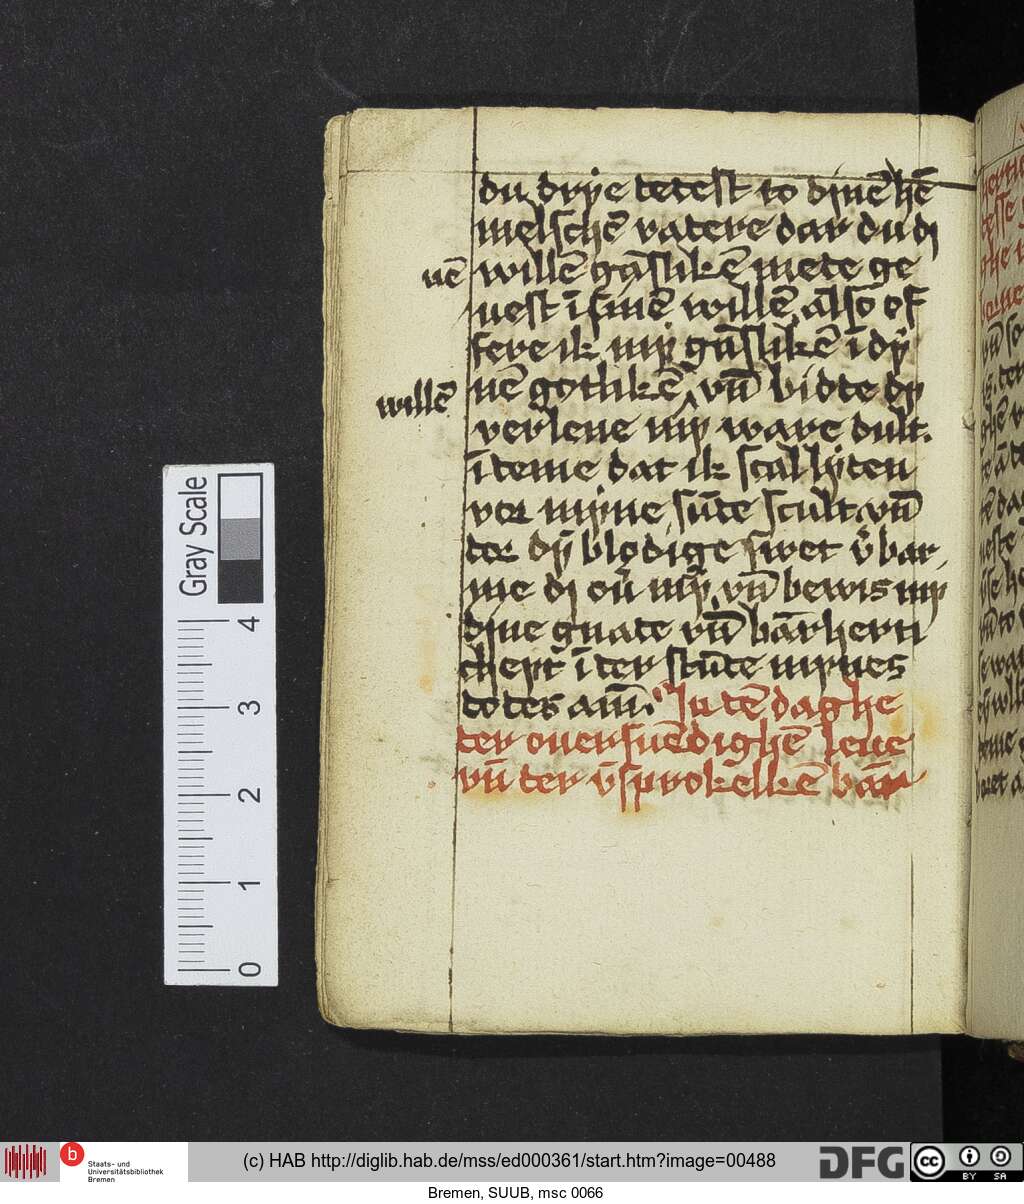 du drye tetest to dinē hē
melschē vatere dar du di
nē willē gāslikē mete ge
uest ī sinē willē also of
fere ik my gāslikē ī dy
willē
nē gotlikē vn̄ bidte dy
verleue my ware dult.
īteme dat ik scal lyten
ver myne sūte scult vn̄
ter dy blodige swet v̄bar
me di ou̇ my vn̄ bewis my
dine gnate vn̄ bārherti
cheyt ī ter stūte mynes
totes am̄. In tē daghe
ter ouersuēdighē leue
vn̄ ter v̄sprokelkē bār
Gray Scale
4
3
2
1
0
b
Staats- und
Universitätsbibliothek
Bremen
(c) HAB http://diglib.hab.de/mss/ed000361/start.htm?image=00488
DFG
cc BY SA
Bremen, SUUB, msc 0066